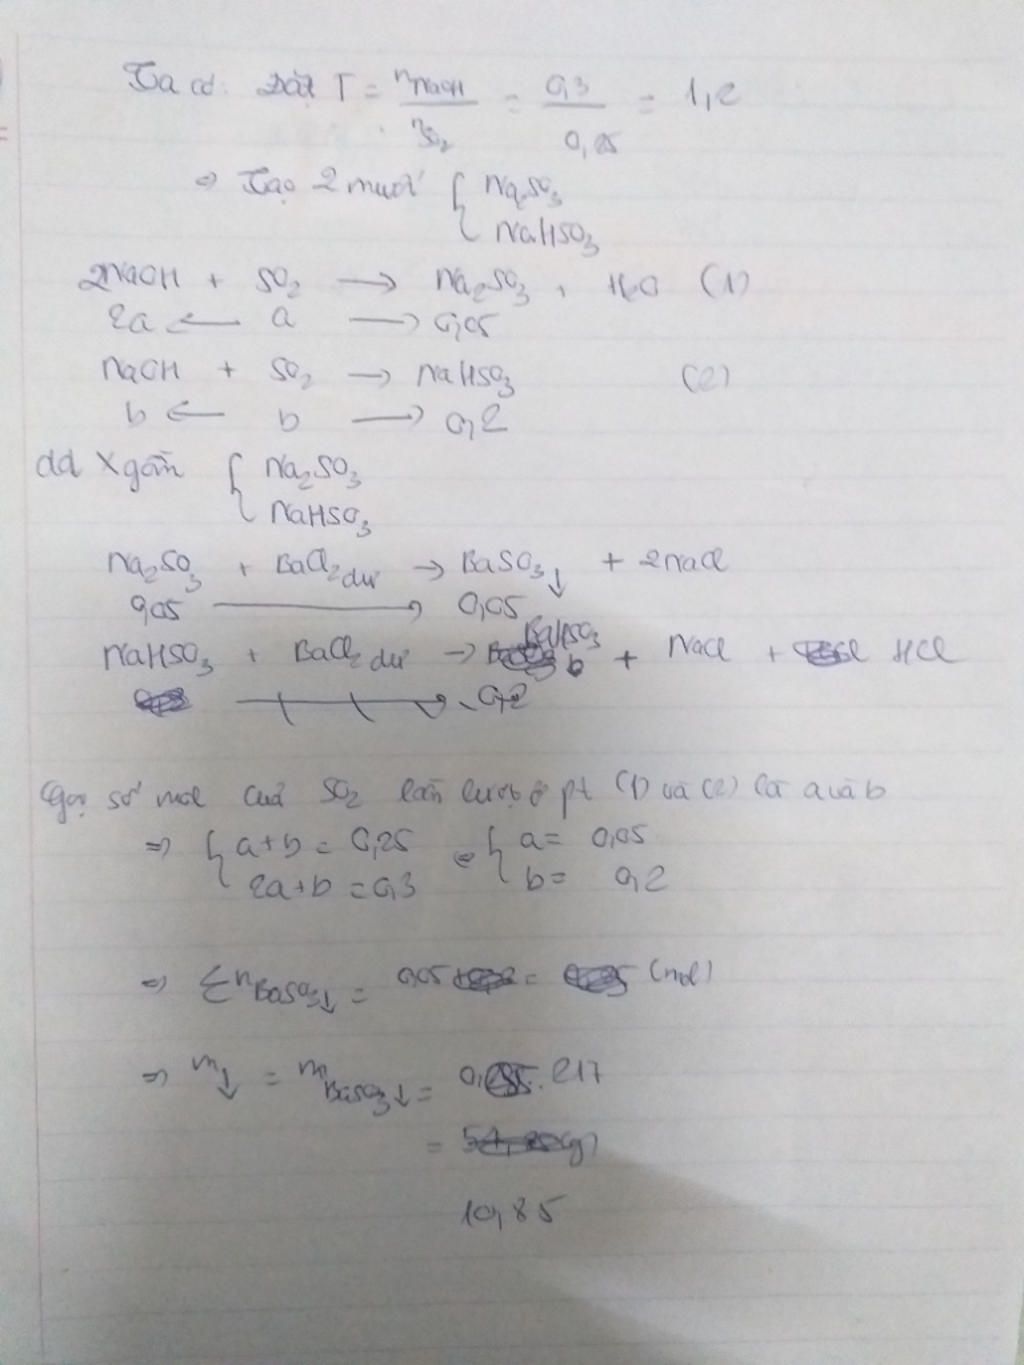 Ta có: Đặt T = nNaOH / nSO2 = 0,3 / 0,25 = 1,2
=> Tạo 2 muối { Na2SO3
NaHSO3
2NaOH + SO2 → Na2SO3 + H2O (1)
2a ← a → 0,05
NaOH + SO2 → NaHSO3 (2)
b ← b → 0,2
dd X gồm { Na2SO3
NaHSO3
Na2SO3 + BaCl2 dư → BaSO3↓ + 2NaCl
0,05 → 0,05
NaHSO3 + BaCl2 dư → BaHSO3 + NaCl + HCl
→ 0,2
Gọi số mol của SO2 lần lượt ở pt (1) và (2) là a và b
=> { a+b = 0,25 <=> { a = 0,05
2a+b = 0,3 b = 0,2
=> ΣnBaSO3↓ = 0,05 = (mol)
=> m↓ = mBaSO3↓ = 0, . 217
= (g)
10,85